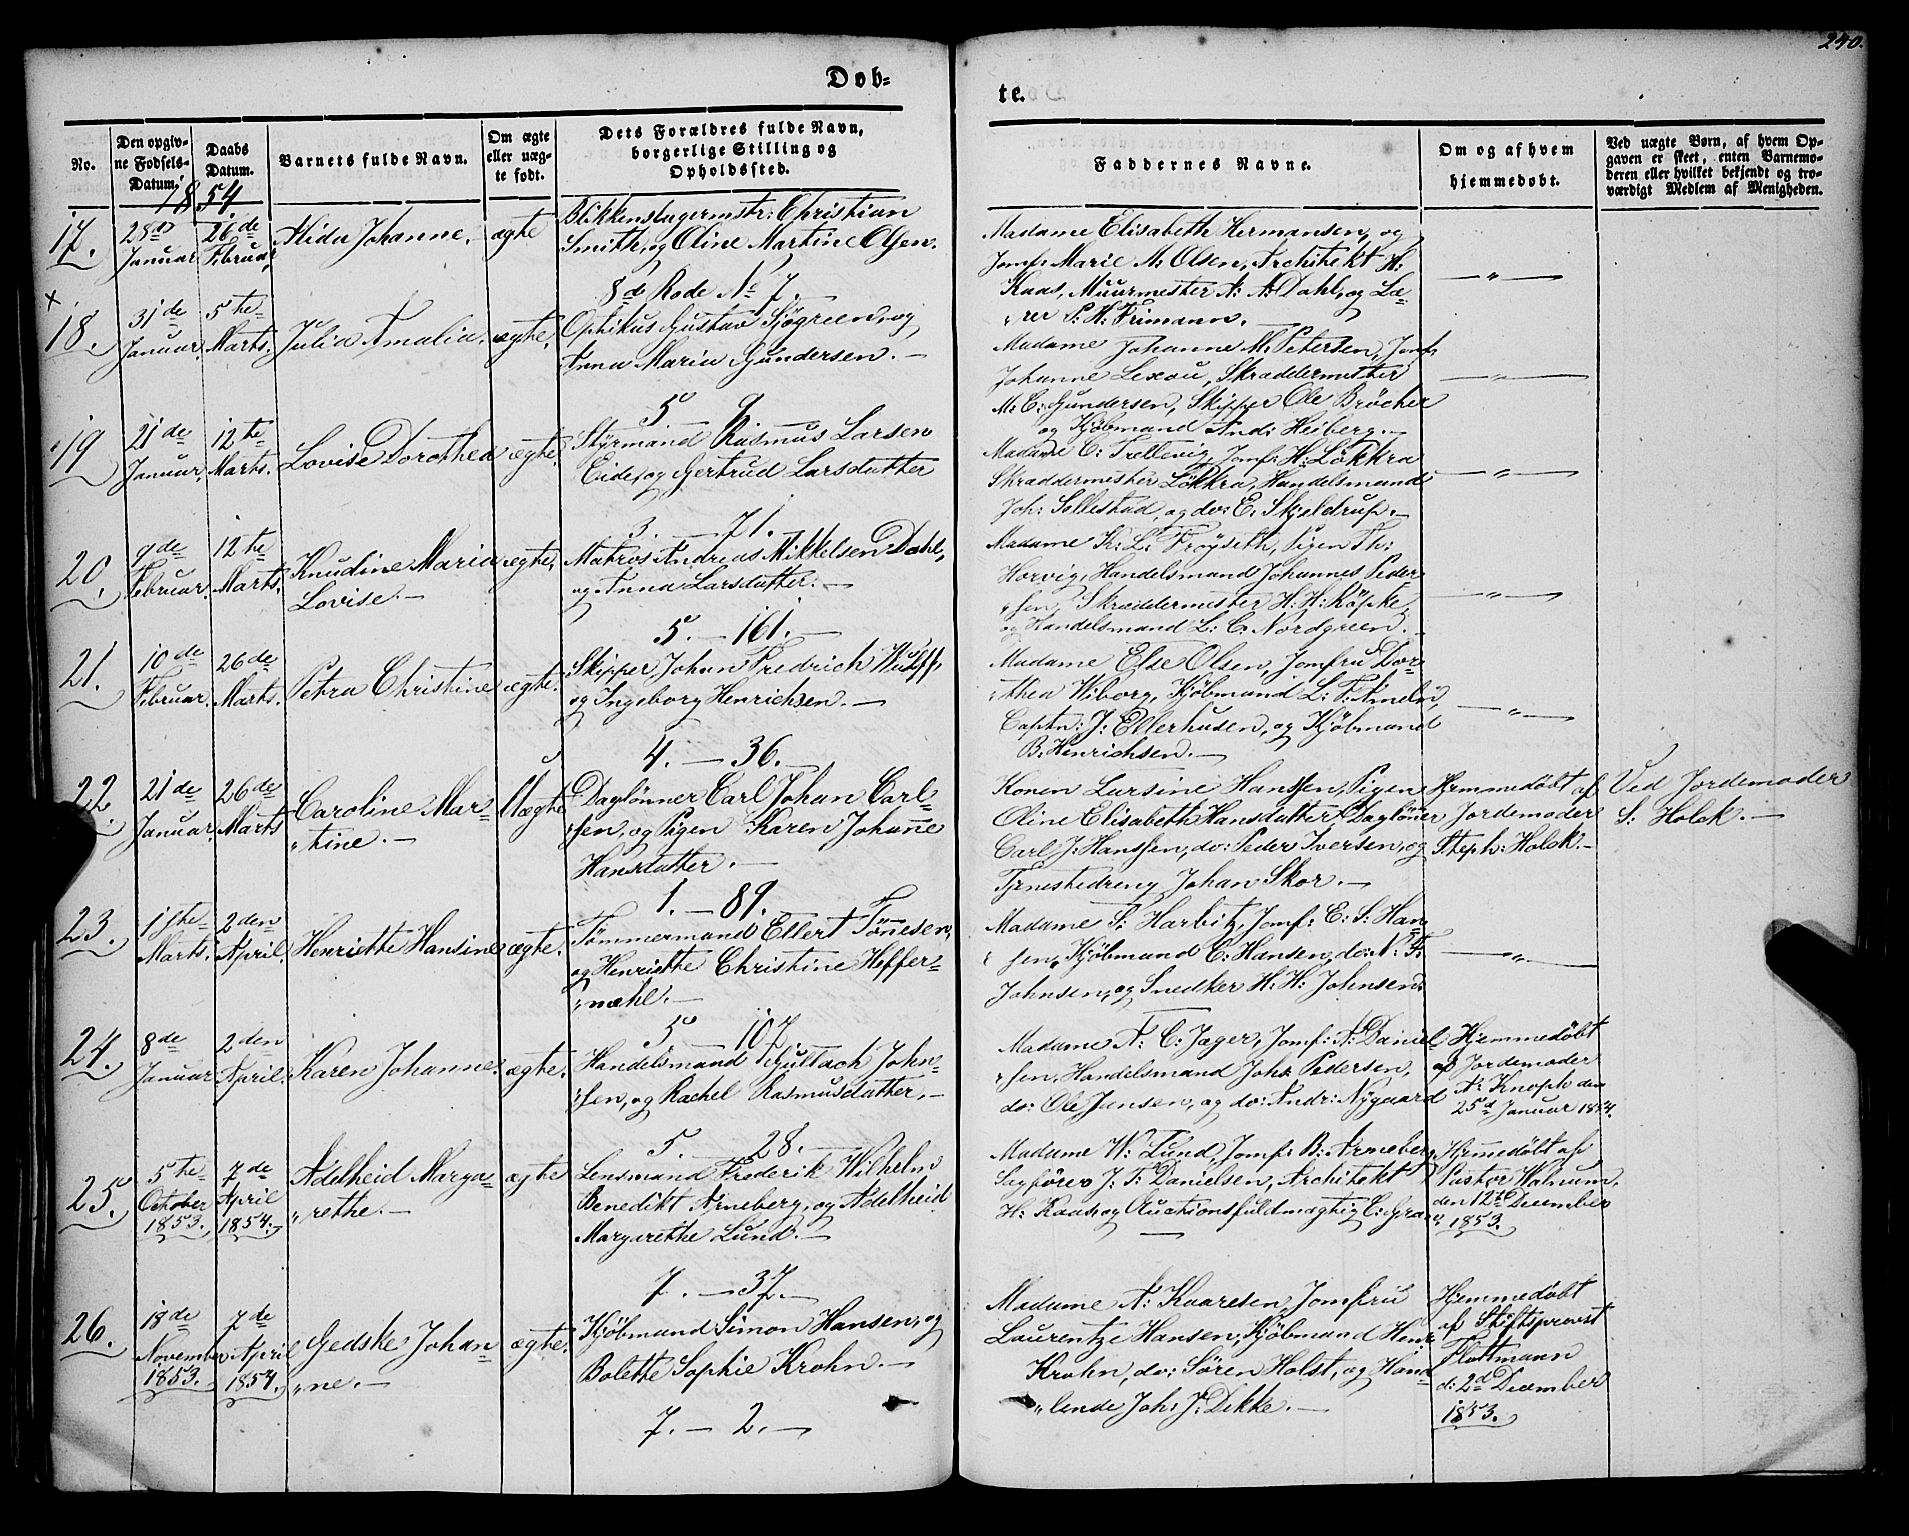 240.
Døb-
te.
No.
Den opgiv-
ne Fødsels-
Datum.
Daabs
Datum.
Barnets fulde Navn.
Om ægte
eller uæg-
te født.
Dets Forældres fulde Navn,
borgerlige Stilling og
Opholdssted.
Faddernes Navne.
Om og af hvem
hjemmedøbt.
Ved uægte Børn, af hvem Op-
gaven er skeet, enten Barnemo-
deren eller hvilket bekjendt og tro-
værdigt Medlem af Menigheden.
1854
17.
28de
Januar
26de
Februar
Alida Johanne.
ægte
Blikkenslagermstr: Christian
Smith, og Oline Martine Olsen.
8de Rode No 7.
Madame Elisabeth Hermansen, og
Jomf: Marie M: Olsen, Architekt H:
Kaas, Muurmester A: A: Dahl, og Læ-
rer P: H: Frimann.
— " —
×
18.
31de
Januar.
5te
Marts.
Julia Amalia.
ægte.
Optikus Gustav Sjøgreen, og
Anna Maria Gundersen. —
5 — 9.
Madame Johanne M: Petersen, Jomf:
Johanne Lexau, Skræddermester
M: C: Gundersen, Skipper Ole Bröcher
og Kjøbmand And: Heiberg. —
— " —
19
21de
Januar.
12te
Marts.
Lovise Dorothea
ægte.
Styrmand Rasmus Larsen
Eide, og Gertrud Larsdatter
3. — 71. —
Madame C: Trellevig, Jomf: H: Løkkra
Skræddermester Løkkra, Handelsmand
Joh: Sollestad, og do: E: Skjeldrup. —
— " —
20.
7de
Februar.
12te
Marts.
Knudine Maria
Lovise. —
ægte.
Matros Andreas Mikkelsen Dahl,
og Anna Larsdatter. —
5. — 161. —
Madame Kr: L: Frøyseth, Pigen Th:
Horvig, Handelsmand Johannes Peder-
sen, Skræddermester H: H: Röpke,
og Handelsmand L: C: Nordgreen. —
— " —
21.
10de
Februar.
26de
Marts.
Petra Christine
ægte.
Skipper Johan Fredrich Wulff,
og Ingeborg Henrichsen. —
4. — 36. —
Madame Else Olsen, Jomfru Dor-
thea Wiborg, Kjøbmand L: F: Ameln,
Captn: J: Ellerhusen, og Kjøbmand
B: Henrichsen. —
— " —
22.
21de
Januar.
26de
Marts
Caroline Mar-
"tine. —
Uægte
Daglønner Carl Johan Carl-
sen, og Pigen Karen Johanne
Hansdatter. —
1. — 89. —
Konen Larsine Hanssen, Pigen
Oline Elisabeth Hansdatter, Dagløner
Carl J: Hanssen, do: Peder Iversen, og
Tjenestedreng Johan Skor. —
Hjemmedøbt af
Jordemoder
Steph: Holck. —
Ved Jordemoder
S: Holck. —
23.
1ste
Marts.
2den
April.
Henriette Hansine
ægte.
Tømmermand Ellert Tønesen,
og Henriette Christine Heffer-
"mehl. —
5. — 107.
Madame S: Harbitz, Jomf: E: S: Han-
sen, Kjøbmand C: Hansen, do: N: F:
Johnsen, og Snedker H: H: Johnsen.
— " —
24.
8de
Januar
2den
April.
Karen Johanne.
ægte.
Handelsmand Gullach John-
sen, og Rachel Rasmusdatter. —
5. — 28. —
Madame A: C: Jager, Jomf: A: Daniel-
sen, Handelsmand Joh: Pedersen,
do: Ole Jansen, og do: Andr: Nygaard
Hjemmedøbt
af Jordemoder
A: Knoph den
25d Januar 1854.
25.
5te
October
1853.
7de
April
1854.
Adelheid Marga-
"rethe. —
ægte
Lensmand Frederik Wilhelm
Benedikt Arneberg, og Adelheid
Margarethe Lund. —
7. — 37. —
Madame W: Lund, Jomf: B: Arneberg
Sagfører J: F: Danielsen, Architekt
H: Kaas, og Auctionsfuldmægtig C: Gran
Hjemmedøbt af
Pastor Walnum
den 12te December
1853.
26.
18de
November
1853.
7de
April
1854.
Gedske Johan-
"ne. —
ægte.
Kjøbmand Simon Hansen, og
Bolette Sophie Krohn. —
7. — 2. —
Madame A: Kaaresen, Jomfru
Laurentze Hansen, Kjøbmand Henr:
Krohn, do: Sören Holst, og Hand-
"lende Joh: J: Dekke. —
Hjemmedøbt
af Stiftsprovst
Flottmann
d: 2d December
1853.